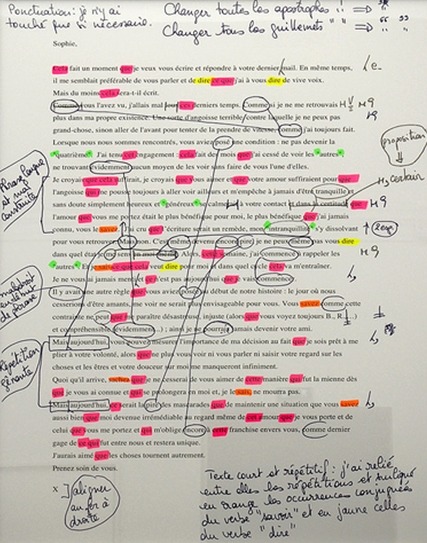 Ponctuation : je n'y ai
touché que si nécessaire.
Changer toutes les apostrophes
Changer tous les guillemets
Sophie,
Cela fait un moment que je veux vous écrire et répondre à votre dernier mail. En même temps,
il me semblait préférable de vous parler et de dire ce que j'ai à vous dire de vive voix.
Mais du moins cela sera-t-il écrit.
Comme vous l'avez vu, j'allais mal ces derniers temps. Comme si je ne me retrouvais
plus dans ma propre existence. Une sorte d'angoisse terrible, contre laquelle je ne peux pas
grand-chose, sinon aller de l'avant pour tenter de la prendre de vitesse, comme j'ai toujours fait.
Lorsque nous nous sommes rencontrés, vous aviez posé une condition : ne pas devenir la
"quatrième". J'ai tenu cet engagement : cela fait mois que j'ai cessé de voir les "autres",
ne trouvant évidemment aucun moyen de les voir sans faire de vous l'une d'elles.
Je croyais que cela suffirait, je croyais que vous aimer et que votre amour suffiraient pour que
l'angoisse qui me pousse toujours à aller voir ailleurs et m'empêche à jamais d'être tranquille et
sans doute simplement heureux et "généreux" se calmerait à votre contact
l'amour que vous me portez était le plus bénéfique pour moi, le plus bénéfique que j'ai jamais
connu, vous le savez. J'ai cru que l'écriture serait un remède, mon "intranquillité" s'y dissolvant
pour vous retrouver. Mais non. C'est même devenu encore pire, je ne peux même pas vous dire
dans quel état je me sens en moi-même. Alors, cette semaine, j'ai commencé à rappeler les
"autres". Et je sais ce que cela veut dire pour moi et dans quel cycle cela va m'entraîner.
Je ne vous ai jamais menti et ce n'est pas aujourd'hui que je vais commencer.
Il y avait une autre règle que vous aviez posée au début de notre histoire : le jour où nous
cesserions d'être amants, me voir ne serait plus envisageable pour vous. Vous savez comme cette
contrainte ne peut que me paraître désastreuse, injuste (alors que vous voyez toujours B., R...)
et compréhensible (évidemment...) ; ainsi je ne pourrais jamais devenir votre ami.
Mais aujourd'hui, vous pouvez mesurer l'importance de ma décision au fait que je sois prêt à me
plier à votre volonté, alors que ne plus vous voir ni vous parler ni saisir votre regard sur les
choses et les êtres et votre douceur sur moi me manqueront infiniment.
Quoi qu'il arrive, sachez que je ne cesserai de vous aimer de cette manière qui fut la mienne dès
que je vous ai connue et qui se prolongera en moi et, je le sais, ne mourra pas.
Mais aujourd'hui, ce serait la pire des mascarades que de maintenir une situation que vous savez
aussi bien que moi devenue irrémédiable au regard même de cet amour que je vous porte et de
celui que vous me portez et qui m'oblige encore à cette franchise envers vous, comme dernier
gage de ce qui fut entre nous et restera unique.
J'aurais aimé que les choses tournent autrement.
Prenez soin de vous.
X
proposition
certain
Répétition
gênante
aligner
à
droite
Texte court et répétitif : j'ai relié
entre elles les répétitions et surligné
en orange les occurrences conjuguées
du verbe "savoir" et en jaune celles
du verbe "dire"